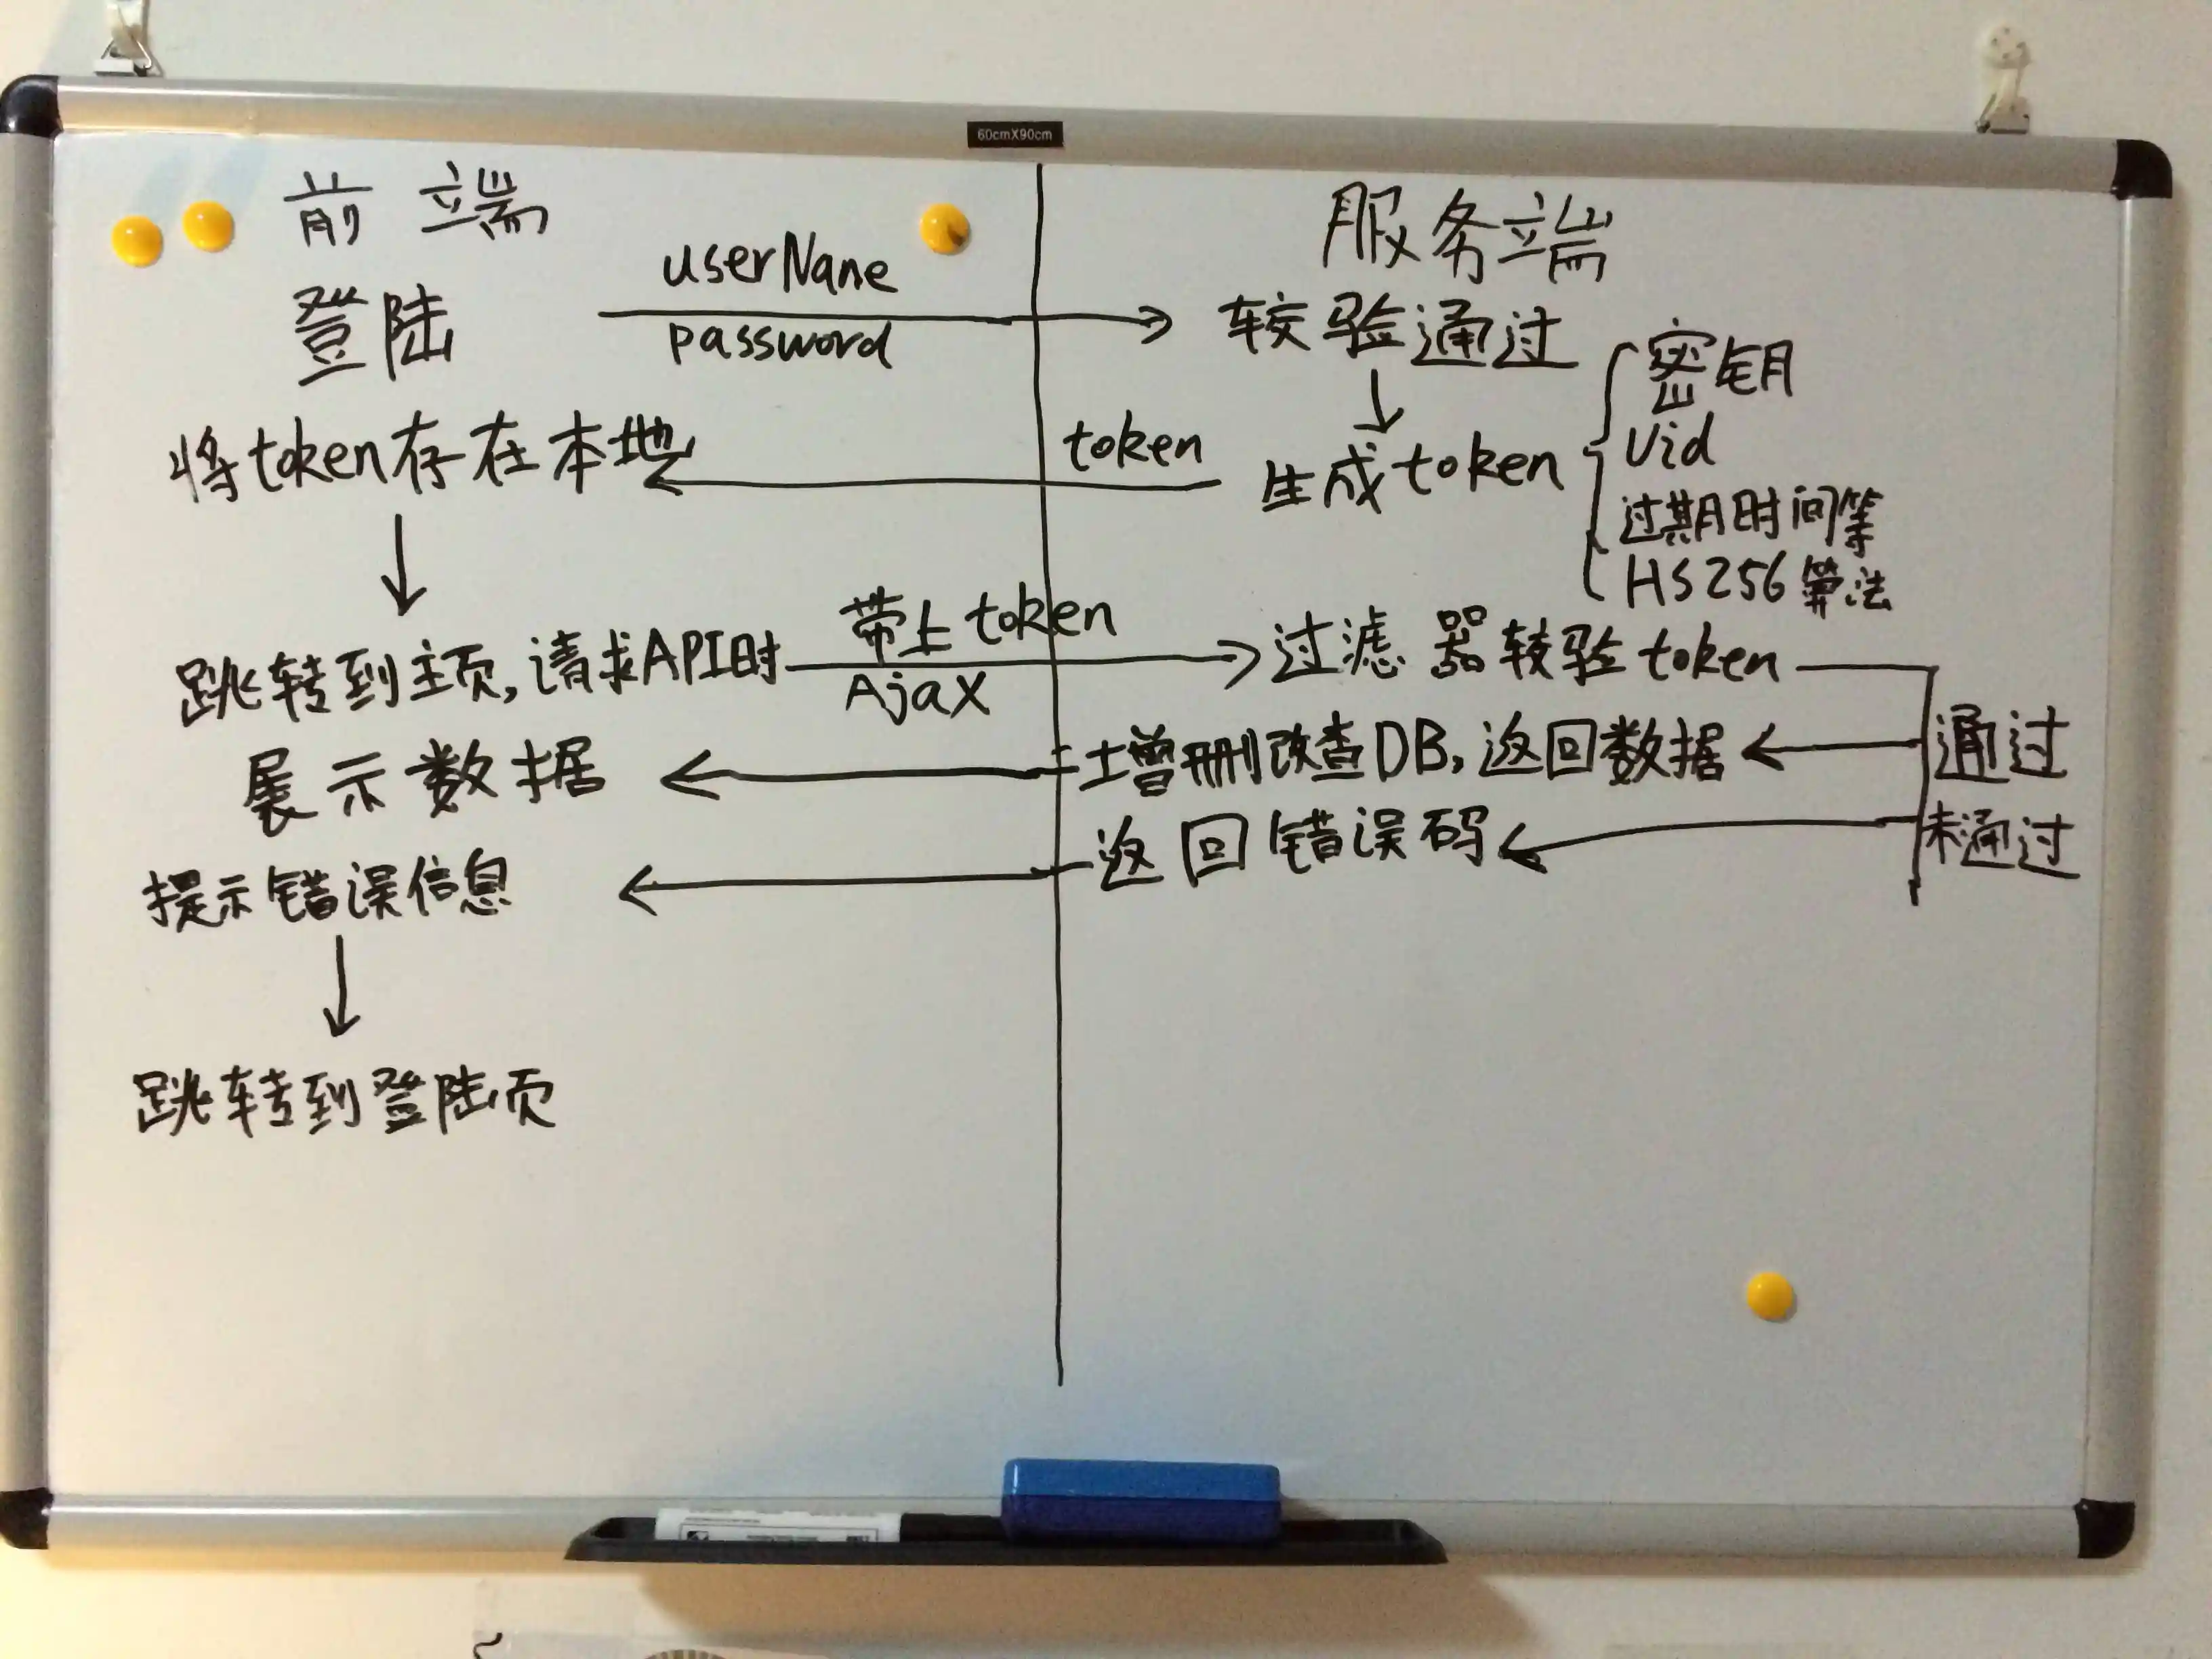 60cmX90cm
前端
服务端
userName
登陆
password
较验通过
密钥
将token存在本地
token
生成token
Uid
过期时间等
HS256算法
带上token
跳转到主页,请求API时
Ajax
过滤器较验token
展示数据
增删改查DB,返回数据
通过
提示错误信息
返回错误码
未通过
跳转到登陆页